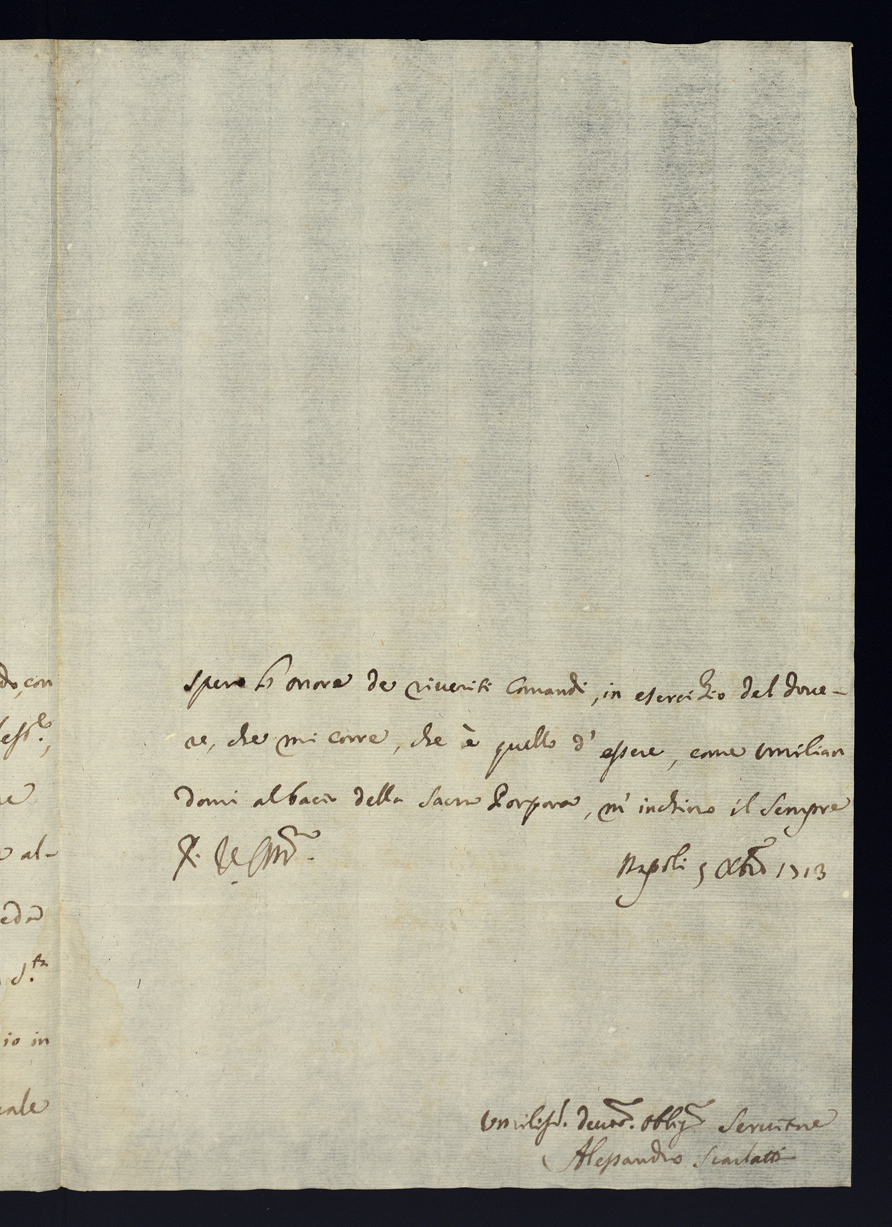 do, con
al-
d.ta
io in
spero l'onore de riveriti Comandi, in esercizio del dove-
re, che mi corre, che è quello d'essere, come umilian
domi al bacio della Sacra Porpora, m'inchino il Sempre
Napoli 5 Xbre 1713
Umiliss. devot. obblig. Servitore
Alessandro Scarlatti